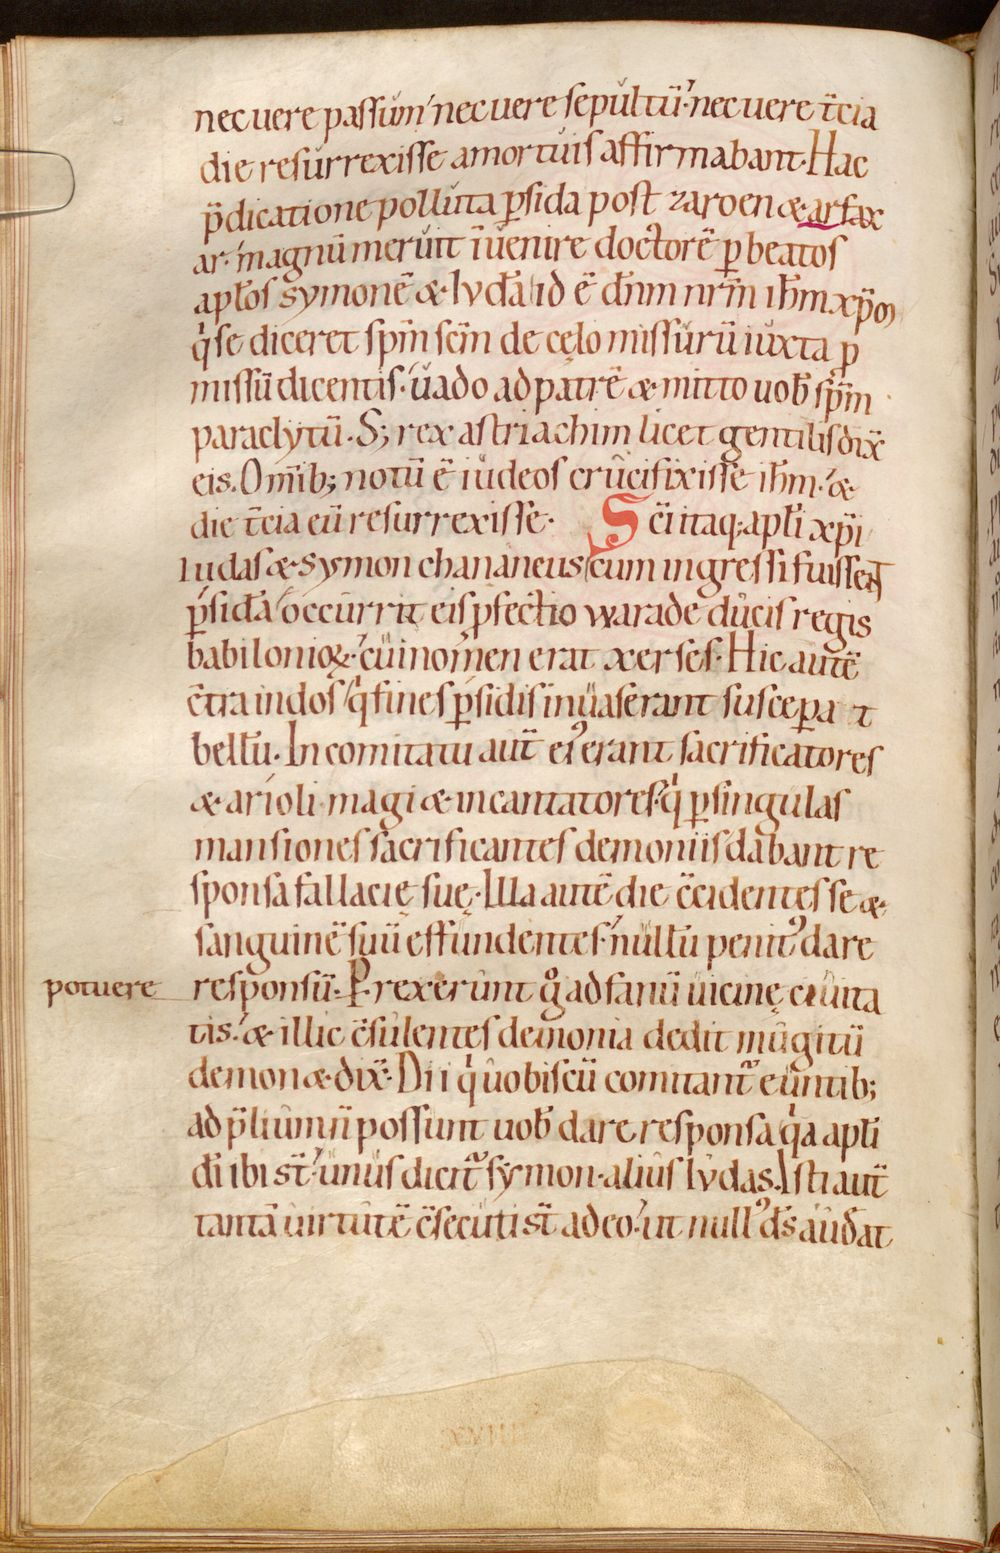 nec uere passum· nec uere sepultū· nec uere t̄cia
die resurrexisse a mortuis affirmabant· Hac
p̄dicatione polluta p̱sida post zaroen & arfax
ar· magnū meruit īuenire doctorē p̱ beatos
ap̄los symonē & Iudā id ē dn̄m nr̄m ih̄m xp̄m
q̇ se diceret sp̄m sc̄m de cęlo missurū iuxta p̱
missū dicentis· uado ad patrē & mitto uob̄ sp̄m
paraclytū· S; rex astriachim licet gentilis dix̄
eis. Omīb; notū ē iudeos crucifixisse ih̄m· &
die t̄cia eū resurrexisse· Sc̄i itaq; apl̄i xp̄i
Iudas & Symon chananeus cum ingressi fuissent
p̱sidā occurrit eis p̱fectio warade ducis regis
babilonioꝝ· cui nomen erat xerses· Hic autē
c̄tra indos q̇ fines p̱sidis inuaserant suscep̱at
bellū· In comitatu aut̄ ei᾽ erant sacrificatores
& arioli· magi & incantatores· q̇ p̱ singulas
mansiones sacrificantes demoniis dabant re
sponsa fallacię suę· Illa autē die c̄cidentes se &
sanguinē suū effundentes· nullū penit᾽ dare
potuere responsū· P̱rexerunt g̊ ad fanū uicinę ciuita
tis· & illic c̄sulentes demonia dedit mugitū
demon & dix̄· Dii q̇ uobiscū comitant᷑ euntib;
ad p̄lium n̄ possunt uob̄ dare responsa q̇a apl̄i
dī ibi st̄· unus dicit᷑ symon· alius Iudas. Isti aut̄
tantā uirtutē c̄secuti st̄ adeo· ut null᾽ ds̄ audeat